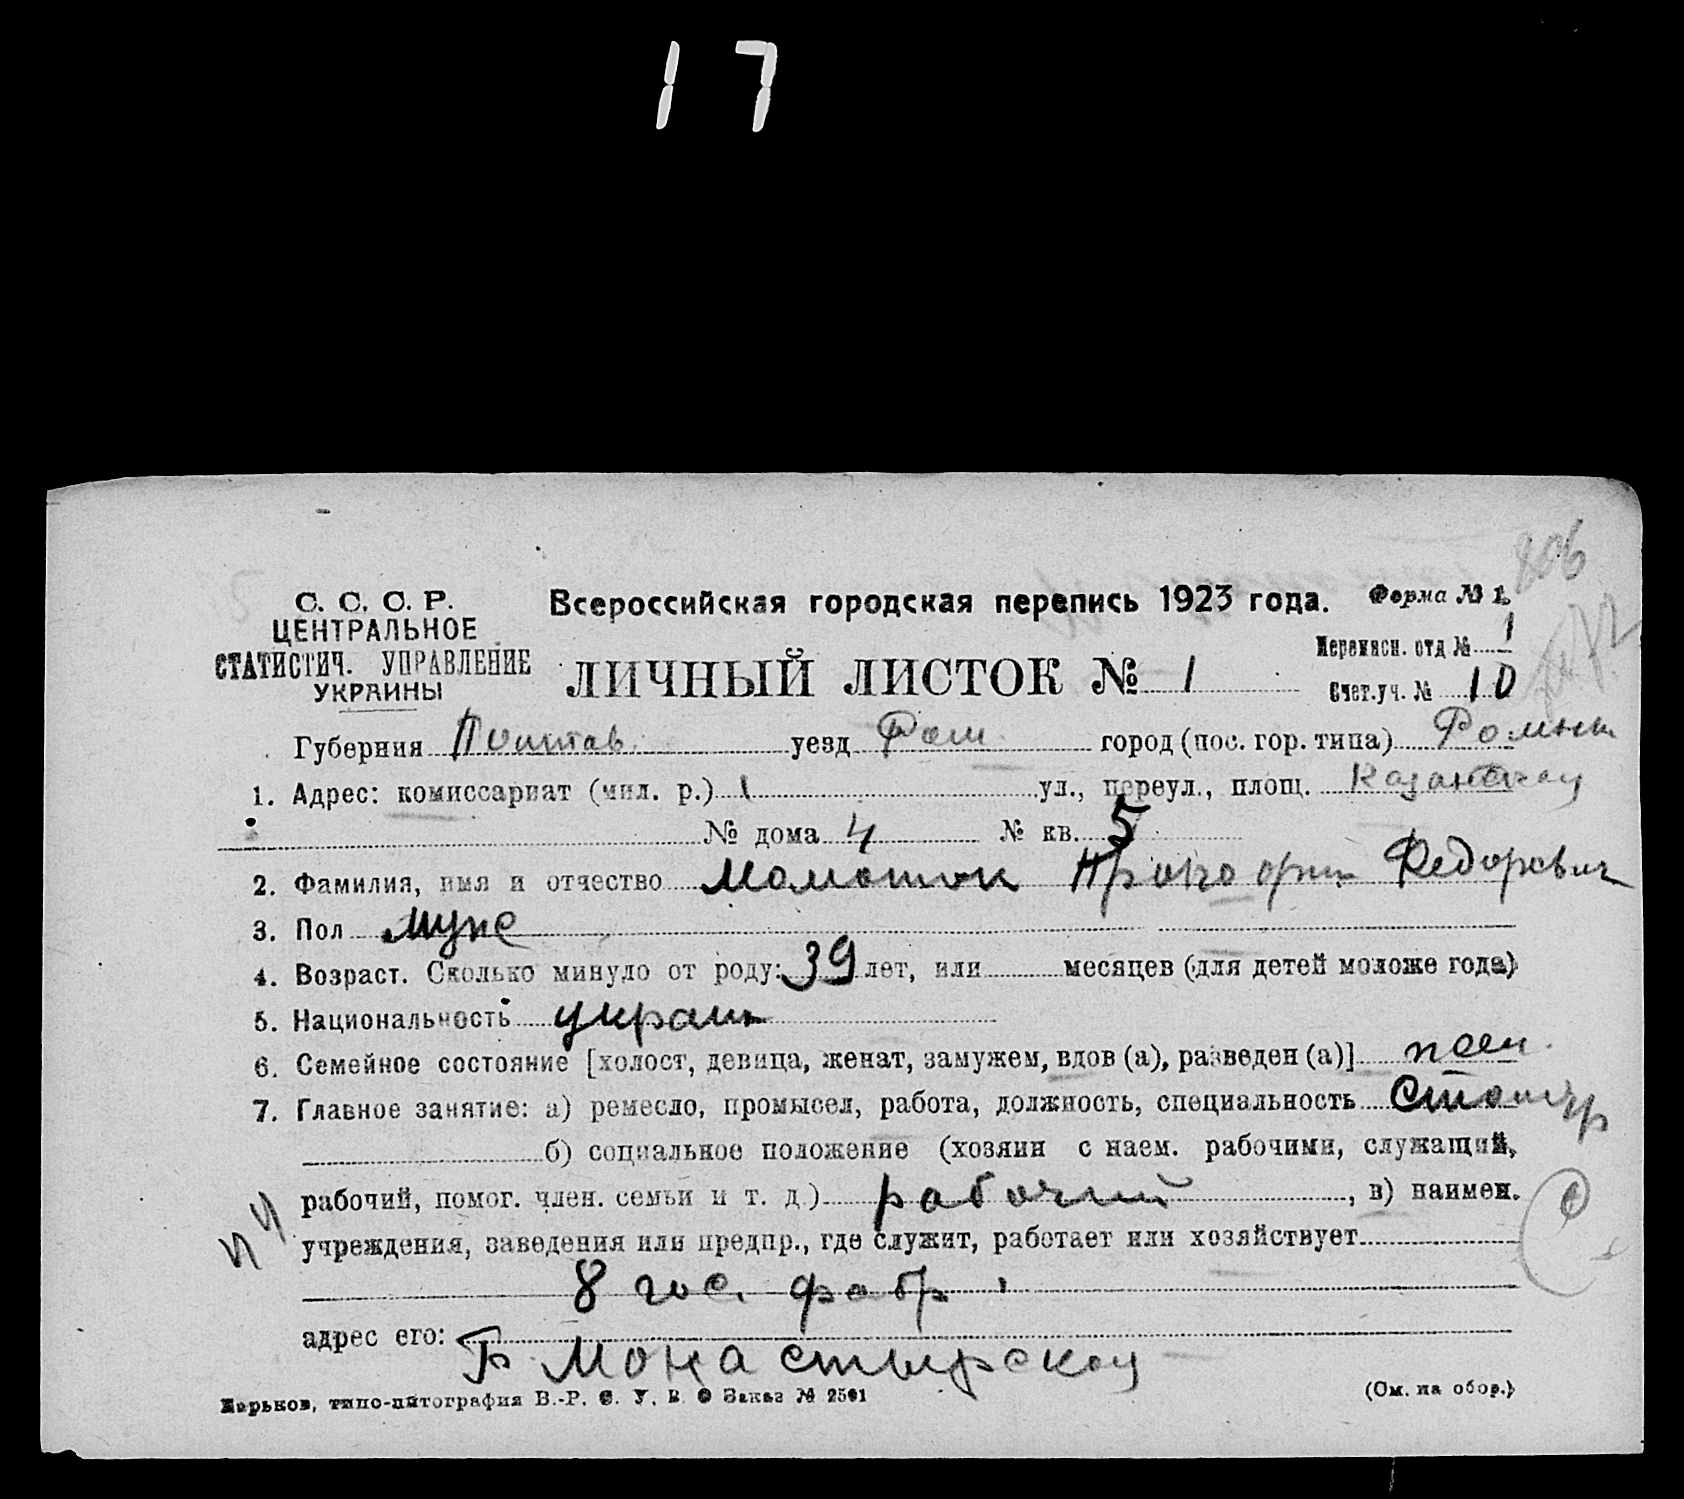 17
806
С. С. С. Р.
ЦЕНТРАЛЬНОЕ
СТАТИСТИЧ. УПРАВЛЕНИЕ
УКРАИНЫ
Всероссийская городская перепись 1923 года.
Форма № 1.
ЛИЧНЫЙ ЛИСТОК № 1
Переписн. отд № 1
Счет.уч. № 10
Губерния Полтав. уезд Ром. город (пос. гор. типа) Ромны
1. Адрес: комиссариат (мил. р.) 1 ул., переул., площ.
№ дома 4 № кв. 5
2. Фамилия, имя и отчество Федорович
3. Пол муж
4. Возраст. Сколько минуло от роду: 39 лет, или месяцев (для детей моложе года)
5. Национальность украин
6. Семейное состояние [холост, девица, женат, замужем, вдов (а), разведен (а)] жен.
7. Главное занятие: а) ремесло, промысел, работа, должность, специальность Столяр
б) социальное положение (хозяин с наем. рабочими, служащий,
рабочий, помог. член. семьи и т. д.) рабочий, в) наимен.
учреждения, заведения или предпр., где служит, работает или хозяйствует
8 гос. фабр.
адрес его: Б. Монастырская
Харьков, типо-литография В.-Р. С. У. В. О Заказ № 2501
(См. на обор.)